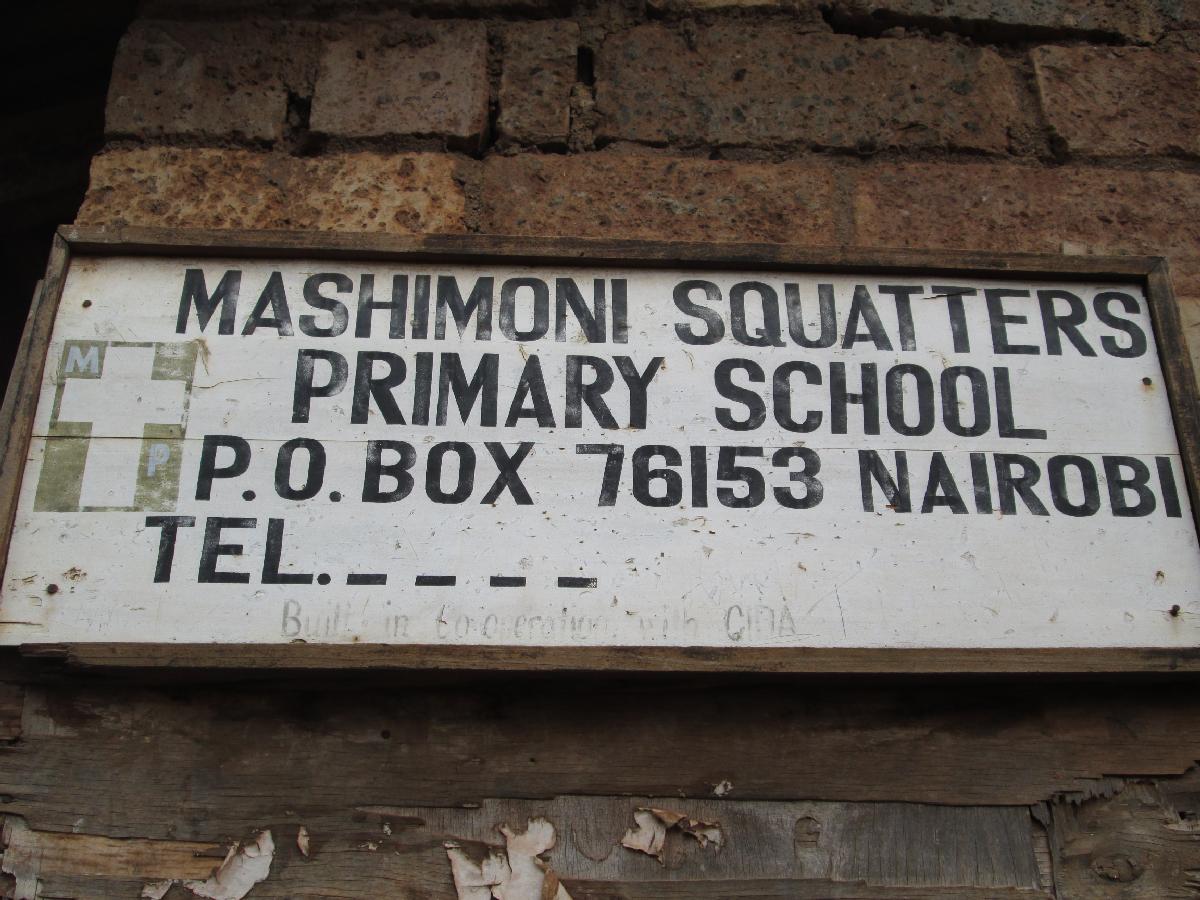 MASHIMONI SQUATTERS
PRIMARY SCHOOL
P.O. BOX 76153 NAIROBI
TEL. _ _ _ _
M
P
Built in co-operation with CIDA